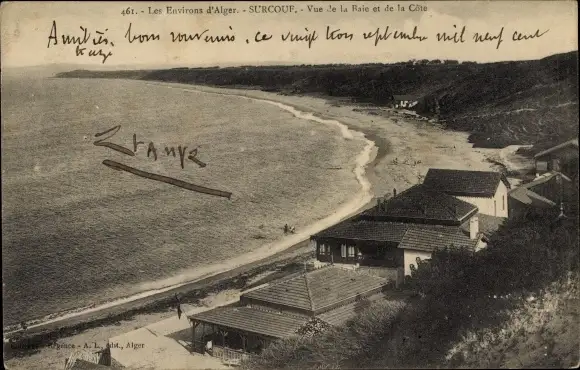 461. - Les Environs d'Alger. - SURCOUF. - Vue de la Baie et de la Côte
Amitiés, bons souvenirs, ce vingt trois septembre mil neuf cent
A. L., édit., Alger